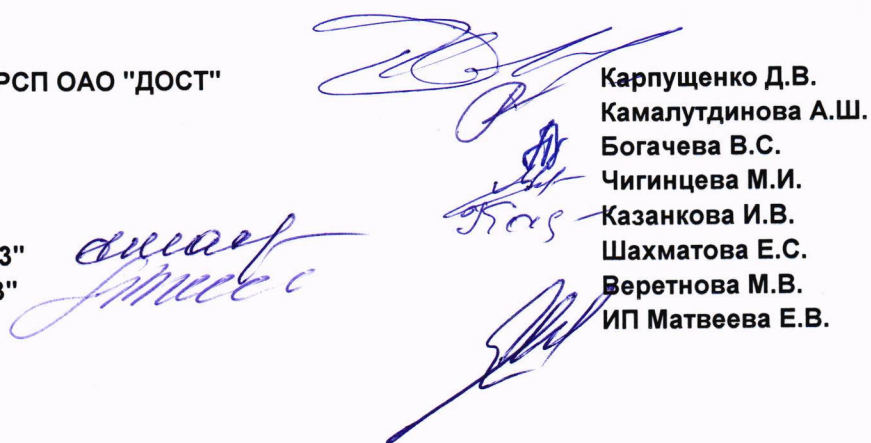 РСП ОАО "ДОСТ" Карпущенко Д.В.
Камалутдинова А.Ш.
Богачева В.С.
Чигинцева М.И.
Казанкова И.В.
3" Шахматова Е.С.
3" Веретнова М.В.
ИП Матвеева Е.В.